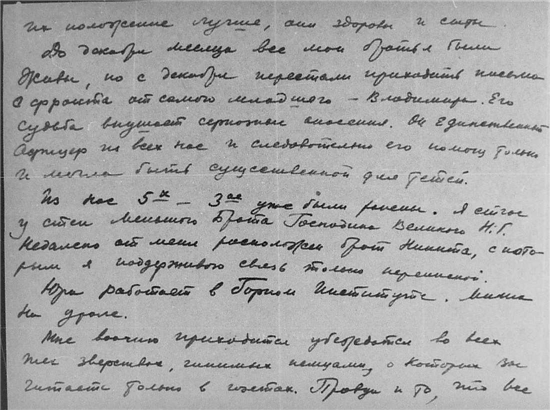 их положение лучше, они здоровы и сыты
До декабря месяца все мои братья были
живы, но с декабря перестали приходить письма
с фронта от самого младшего – Владимира. Его
судьба внушает серьезные опасения. Он единственный
офицер из всех нас и следовательно его помощь только
и могла быть существенной для детей.
Из нас 5х – 3ое уже были ранены. Я сейчас
у стен меньшого брата Господина Великого Н.Г.
Недалеко от меня расположен брат Никита, с кото-
рым я поддерживаю связь только перепиской.
Юра работает в Горном Институте. Миша
на Урале.
Мне воочию приходится убеждаться во всех
тех зверствах, чинимых немцами, о которых вы
читаете только в газетах. Правда и то, что все